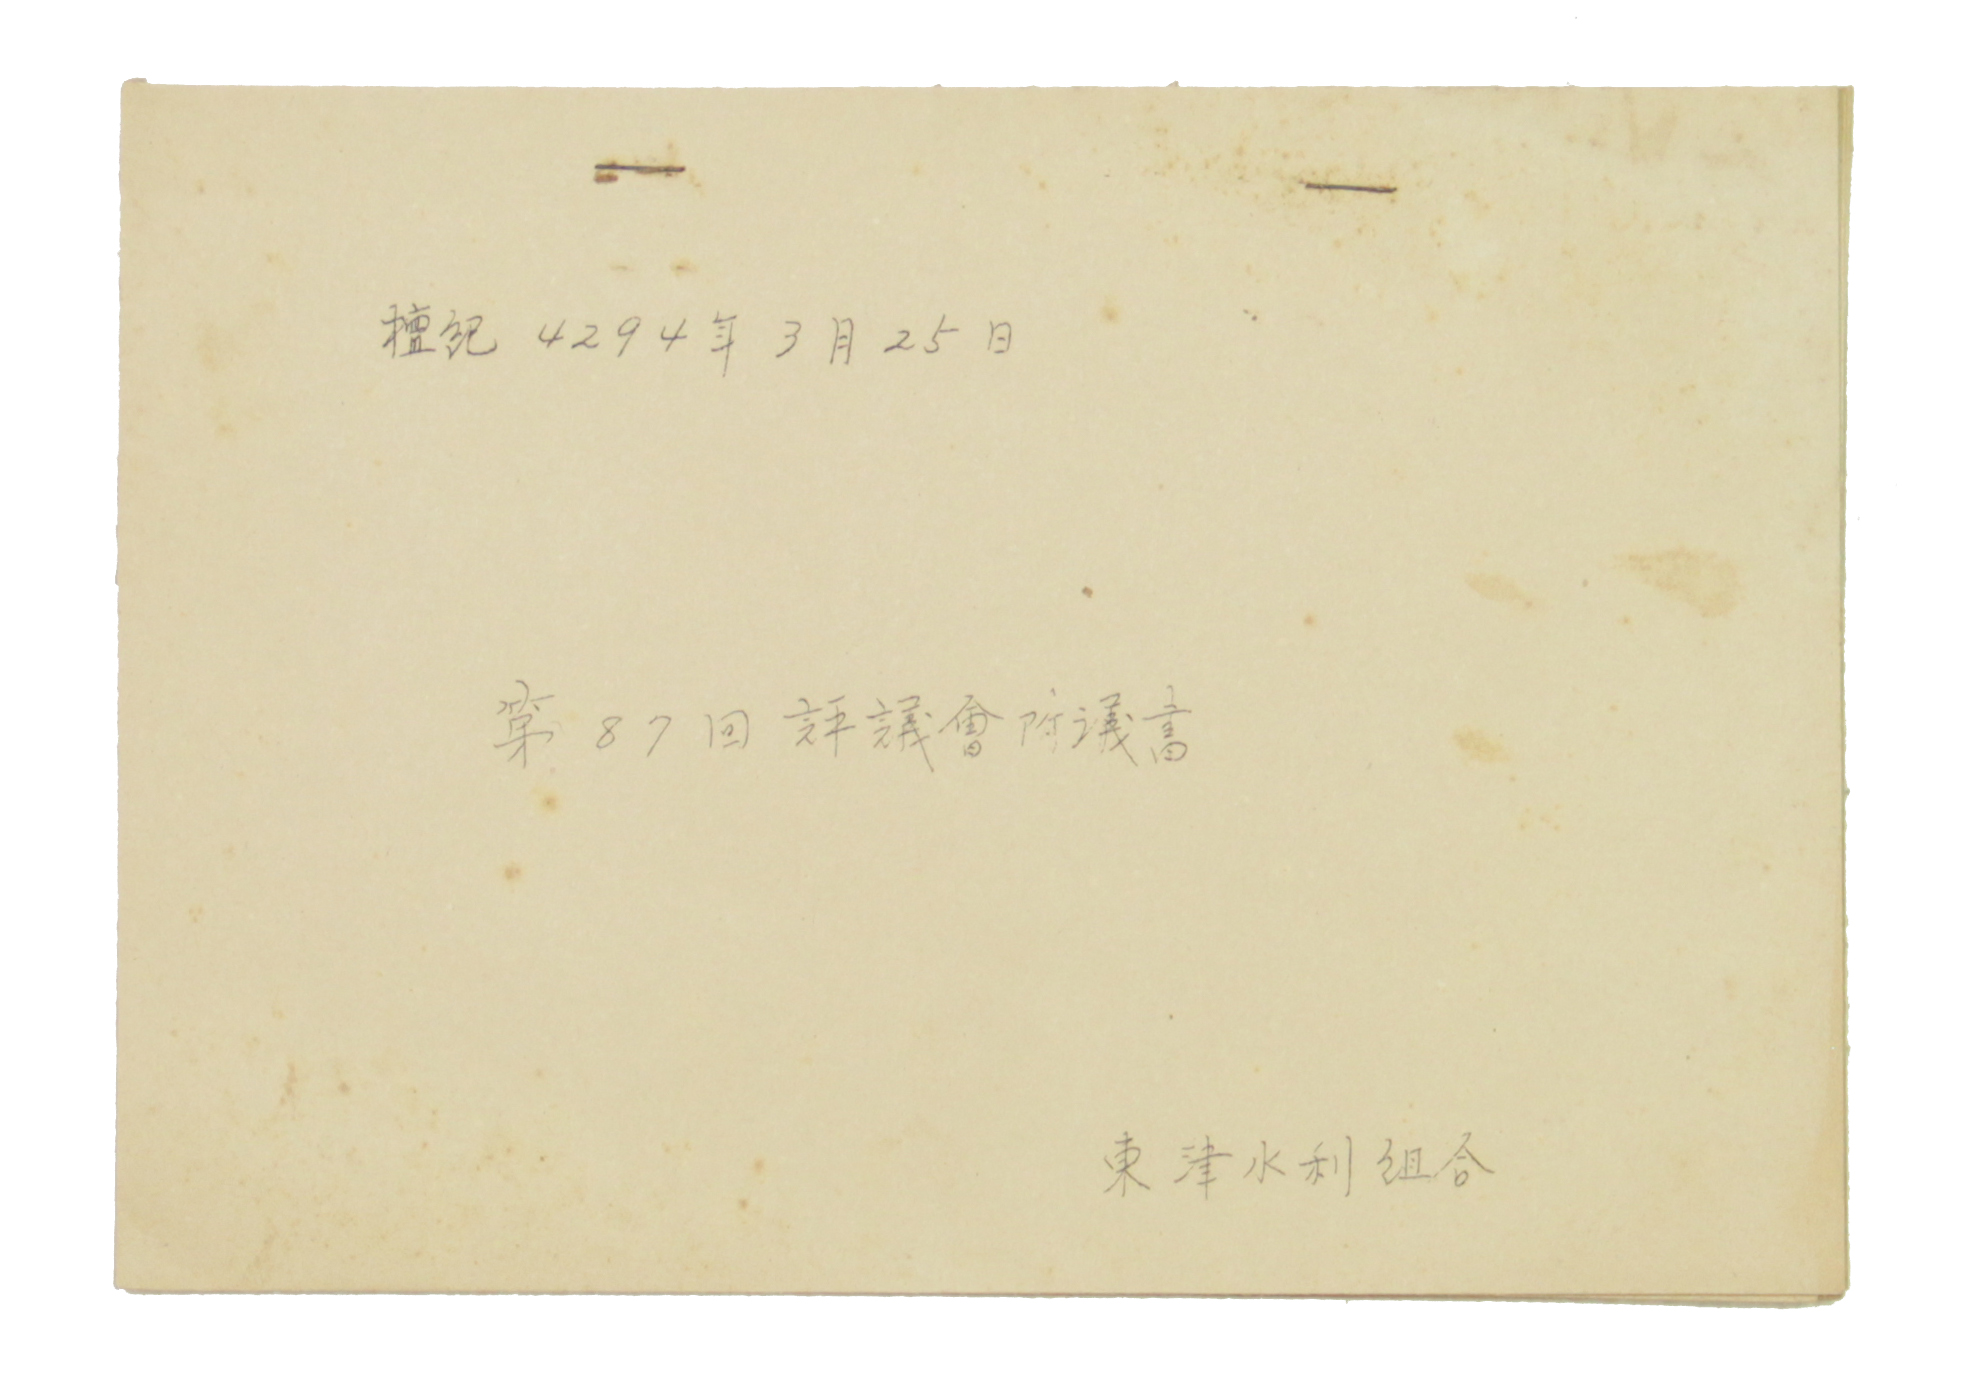 檀紀 4294年 3月 25日
第 87回 評議會附議書
東津水利組合